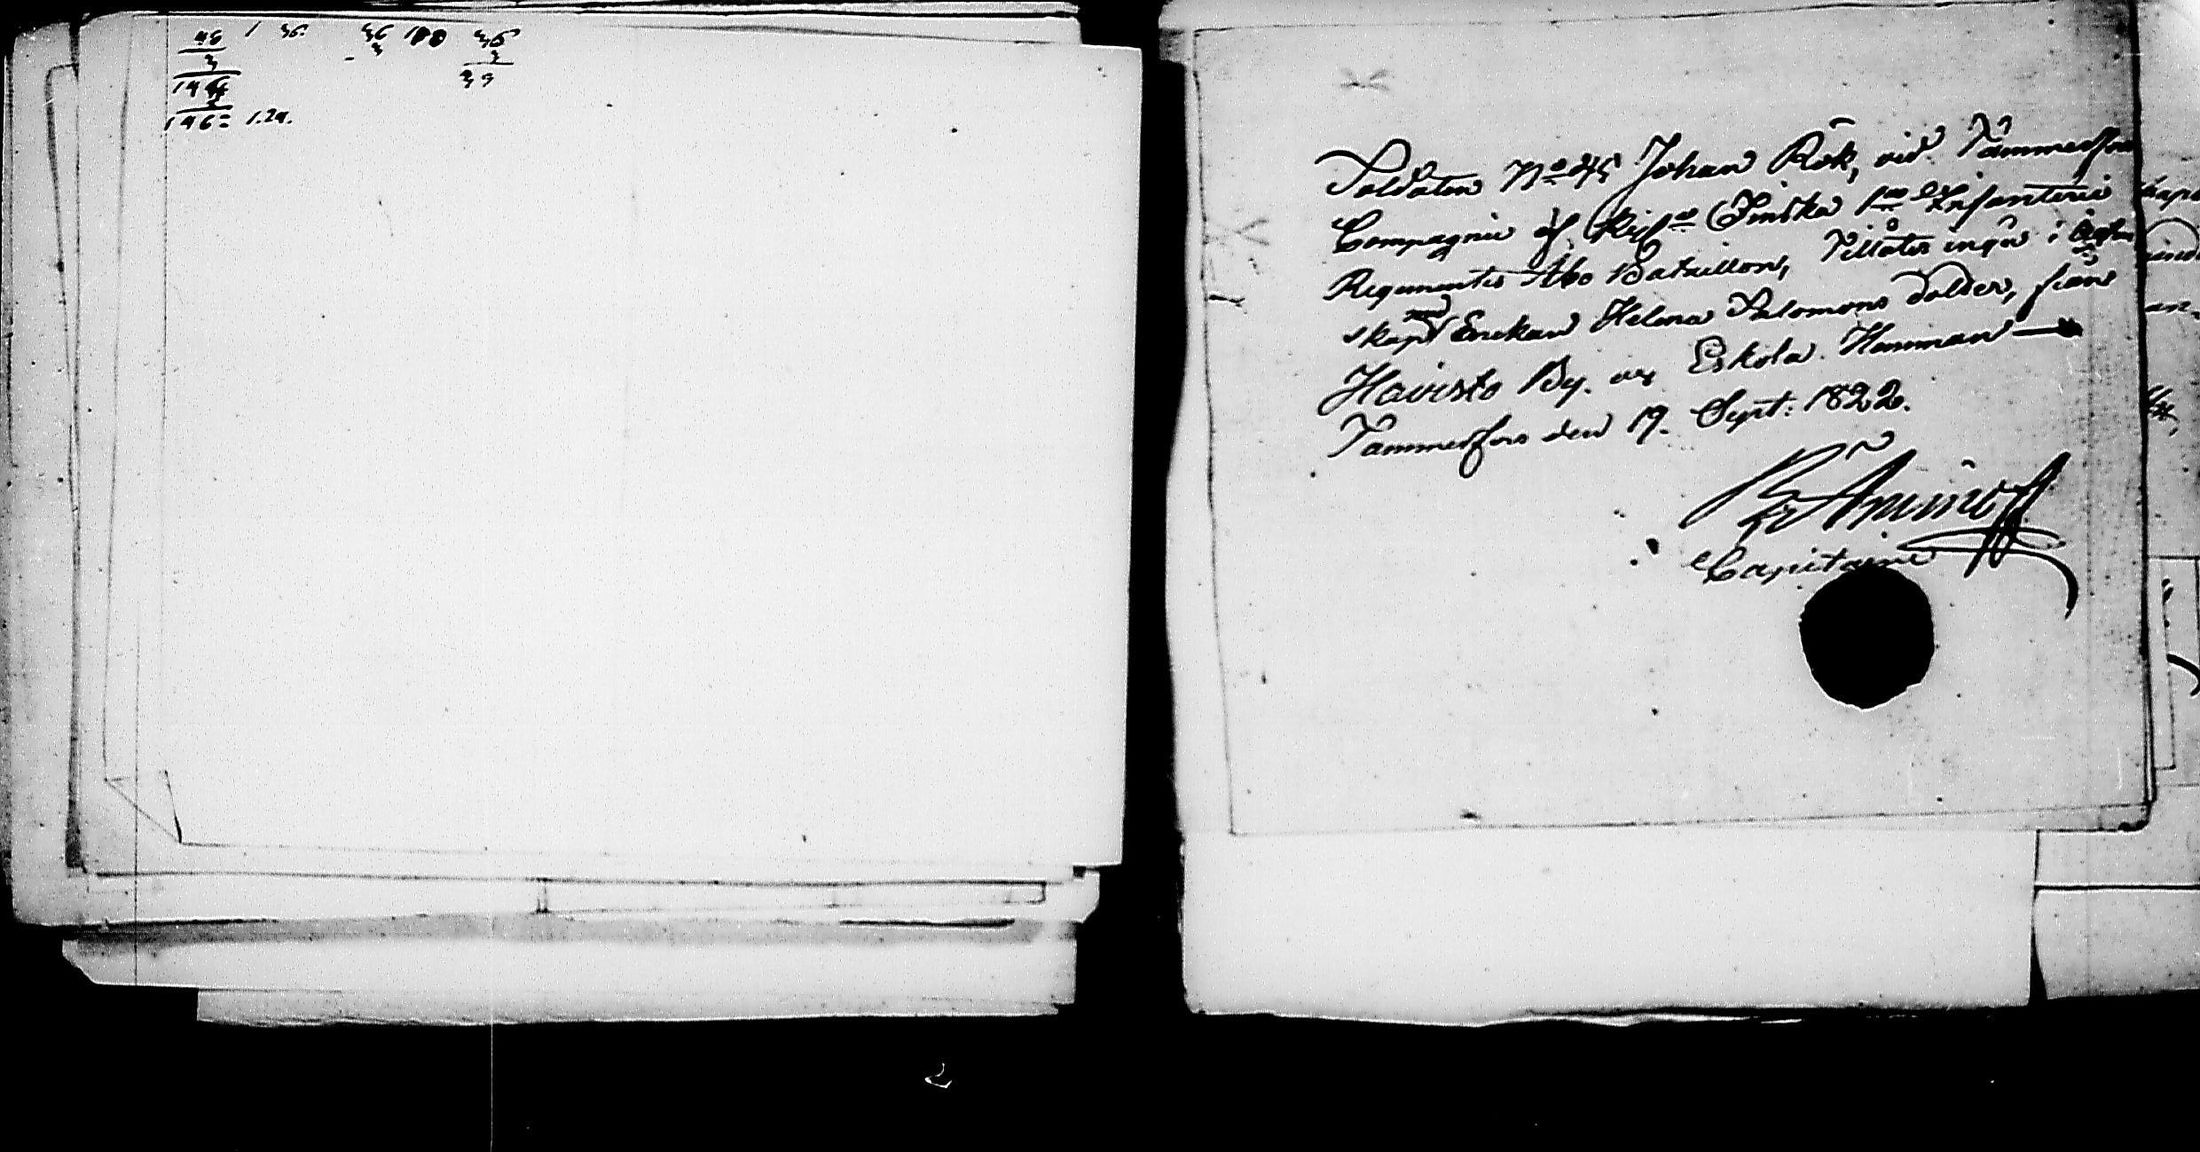 46 1 36. 36 100 36
3 3 3
144 39
2
146= 1.24.
Soldaten No 45 Johan Rök, vid Tammerfors
Compagnie af Kejs Finska 1sta Infanterie
Regementes Åbo Bataillon, Tillåtes ingå i
skap med Enckan Helena Salomons dotter, från
Havisto By. och Eskola Hemman —
Tammerfors den 19. Sept: 1822.
Aminoff
Capitaine